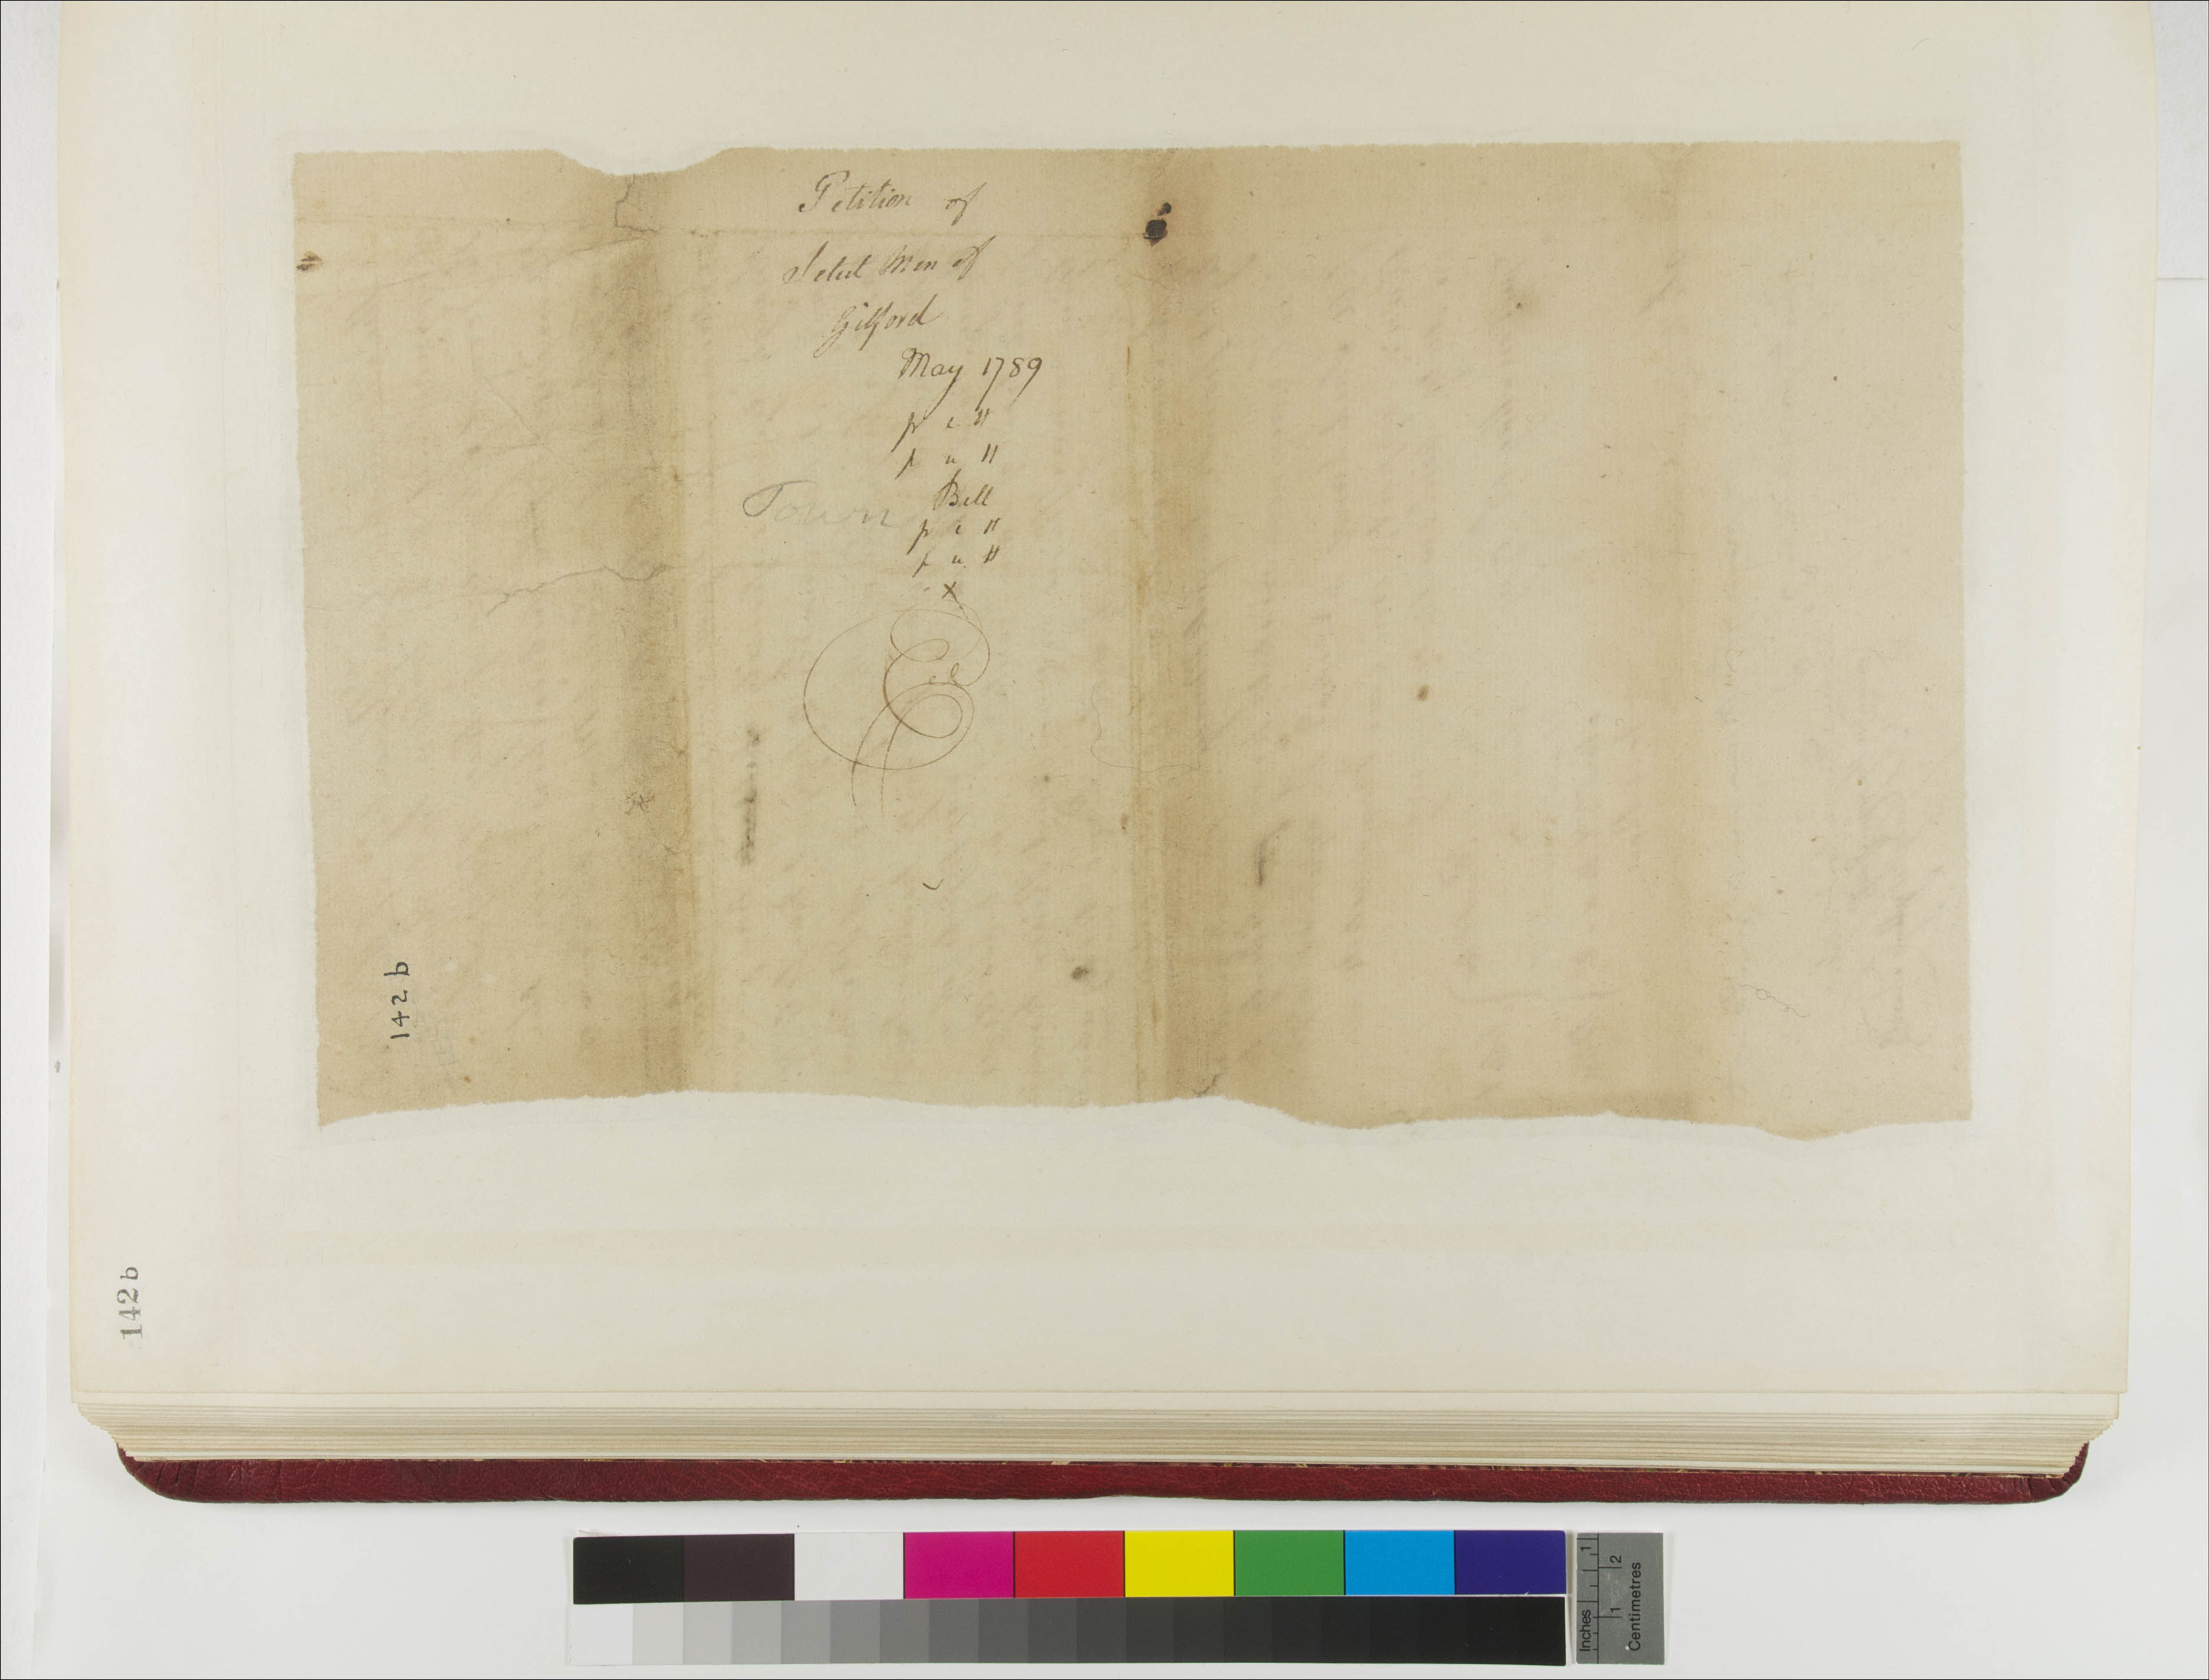 Petition of
Select Men of
Gilford
May 1789
p c H
p u H
Town Bill
p c H
p u H
x
142 b
142 b
Inches 1
Centimetres 1 2